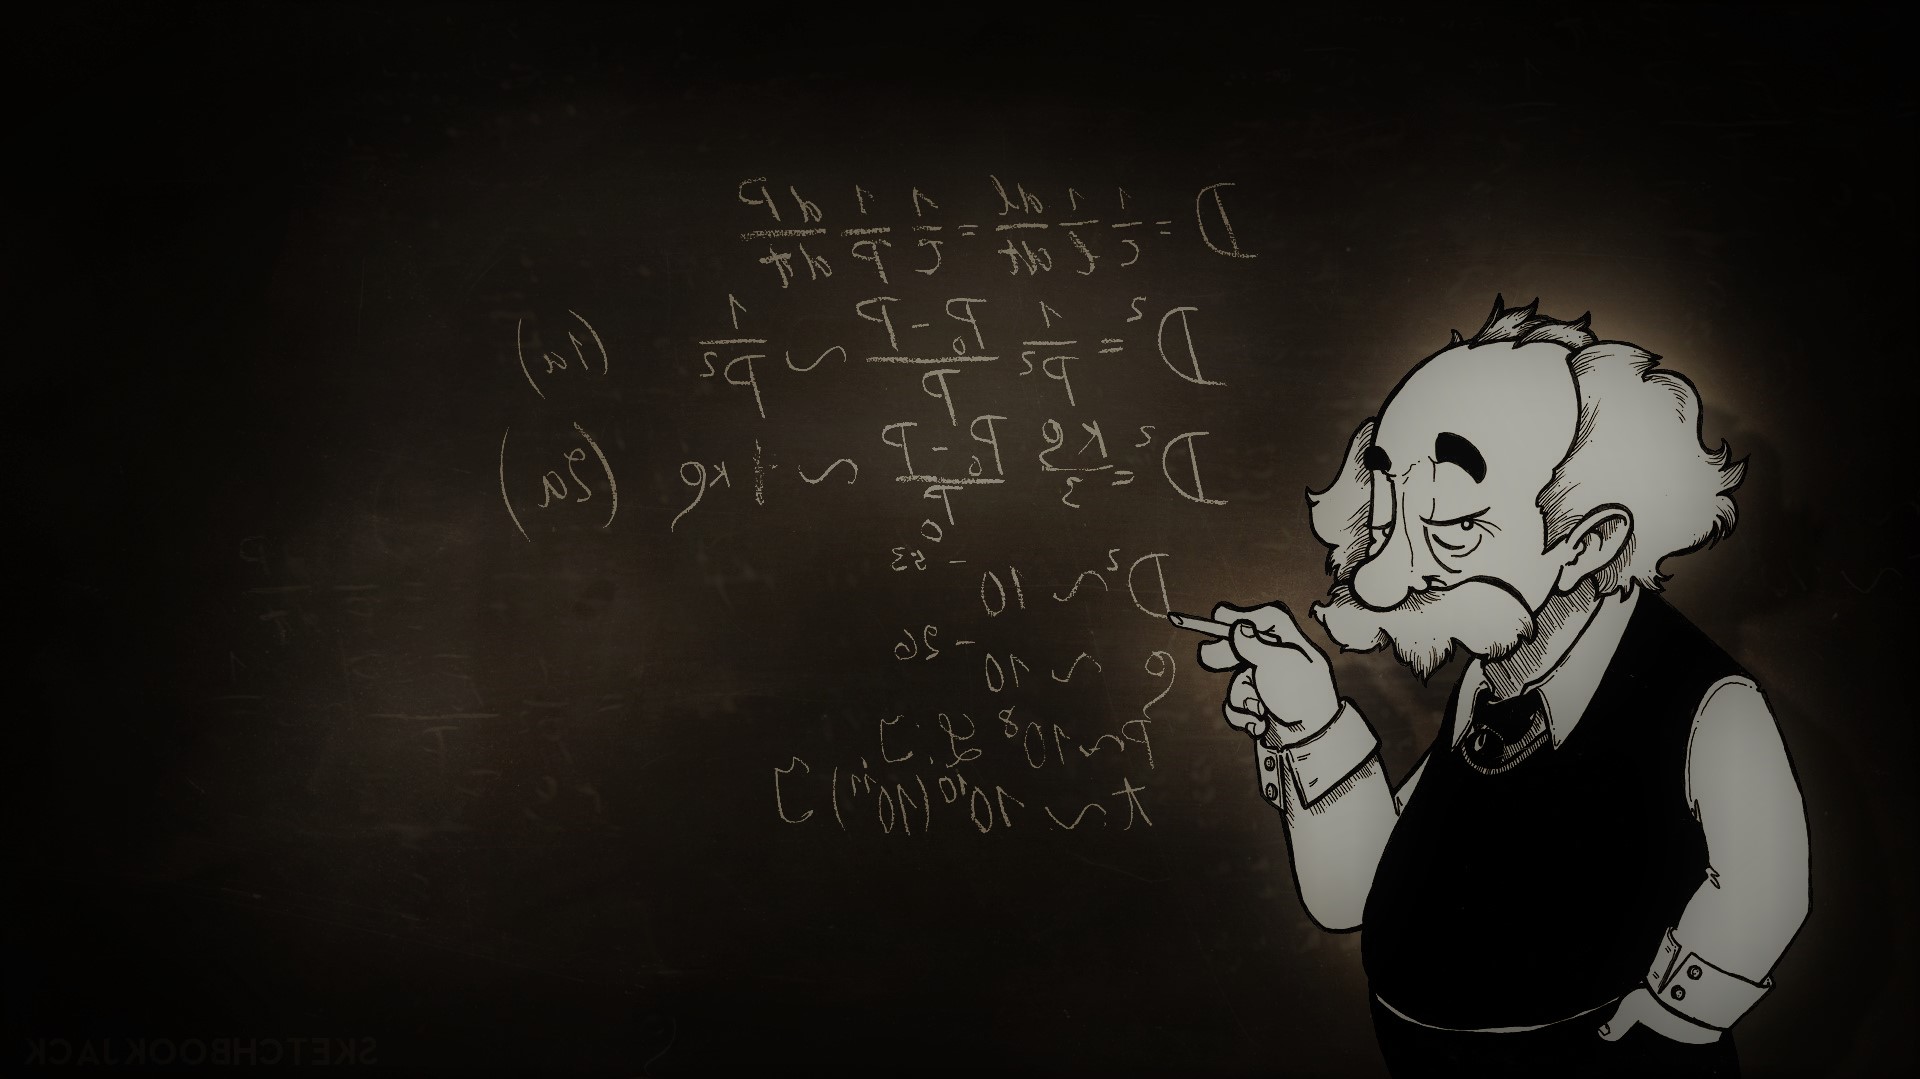 D = 1/c 1/l dl/dt = 1/c 1/P dP/dt
D² = 1/P² P₀-P/P ~ 1/P² (1a)
D² = κρ/3 P₀-P/P₀ ~ κρ (2a)
D² ~ 10⁻⁵³
ρ ~ 10⁻²⁶
P ~ 10⁸ L.J.
t ~ 10¹⁰(10¹¹) J
SKETCHBOOKJACK